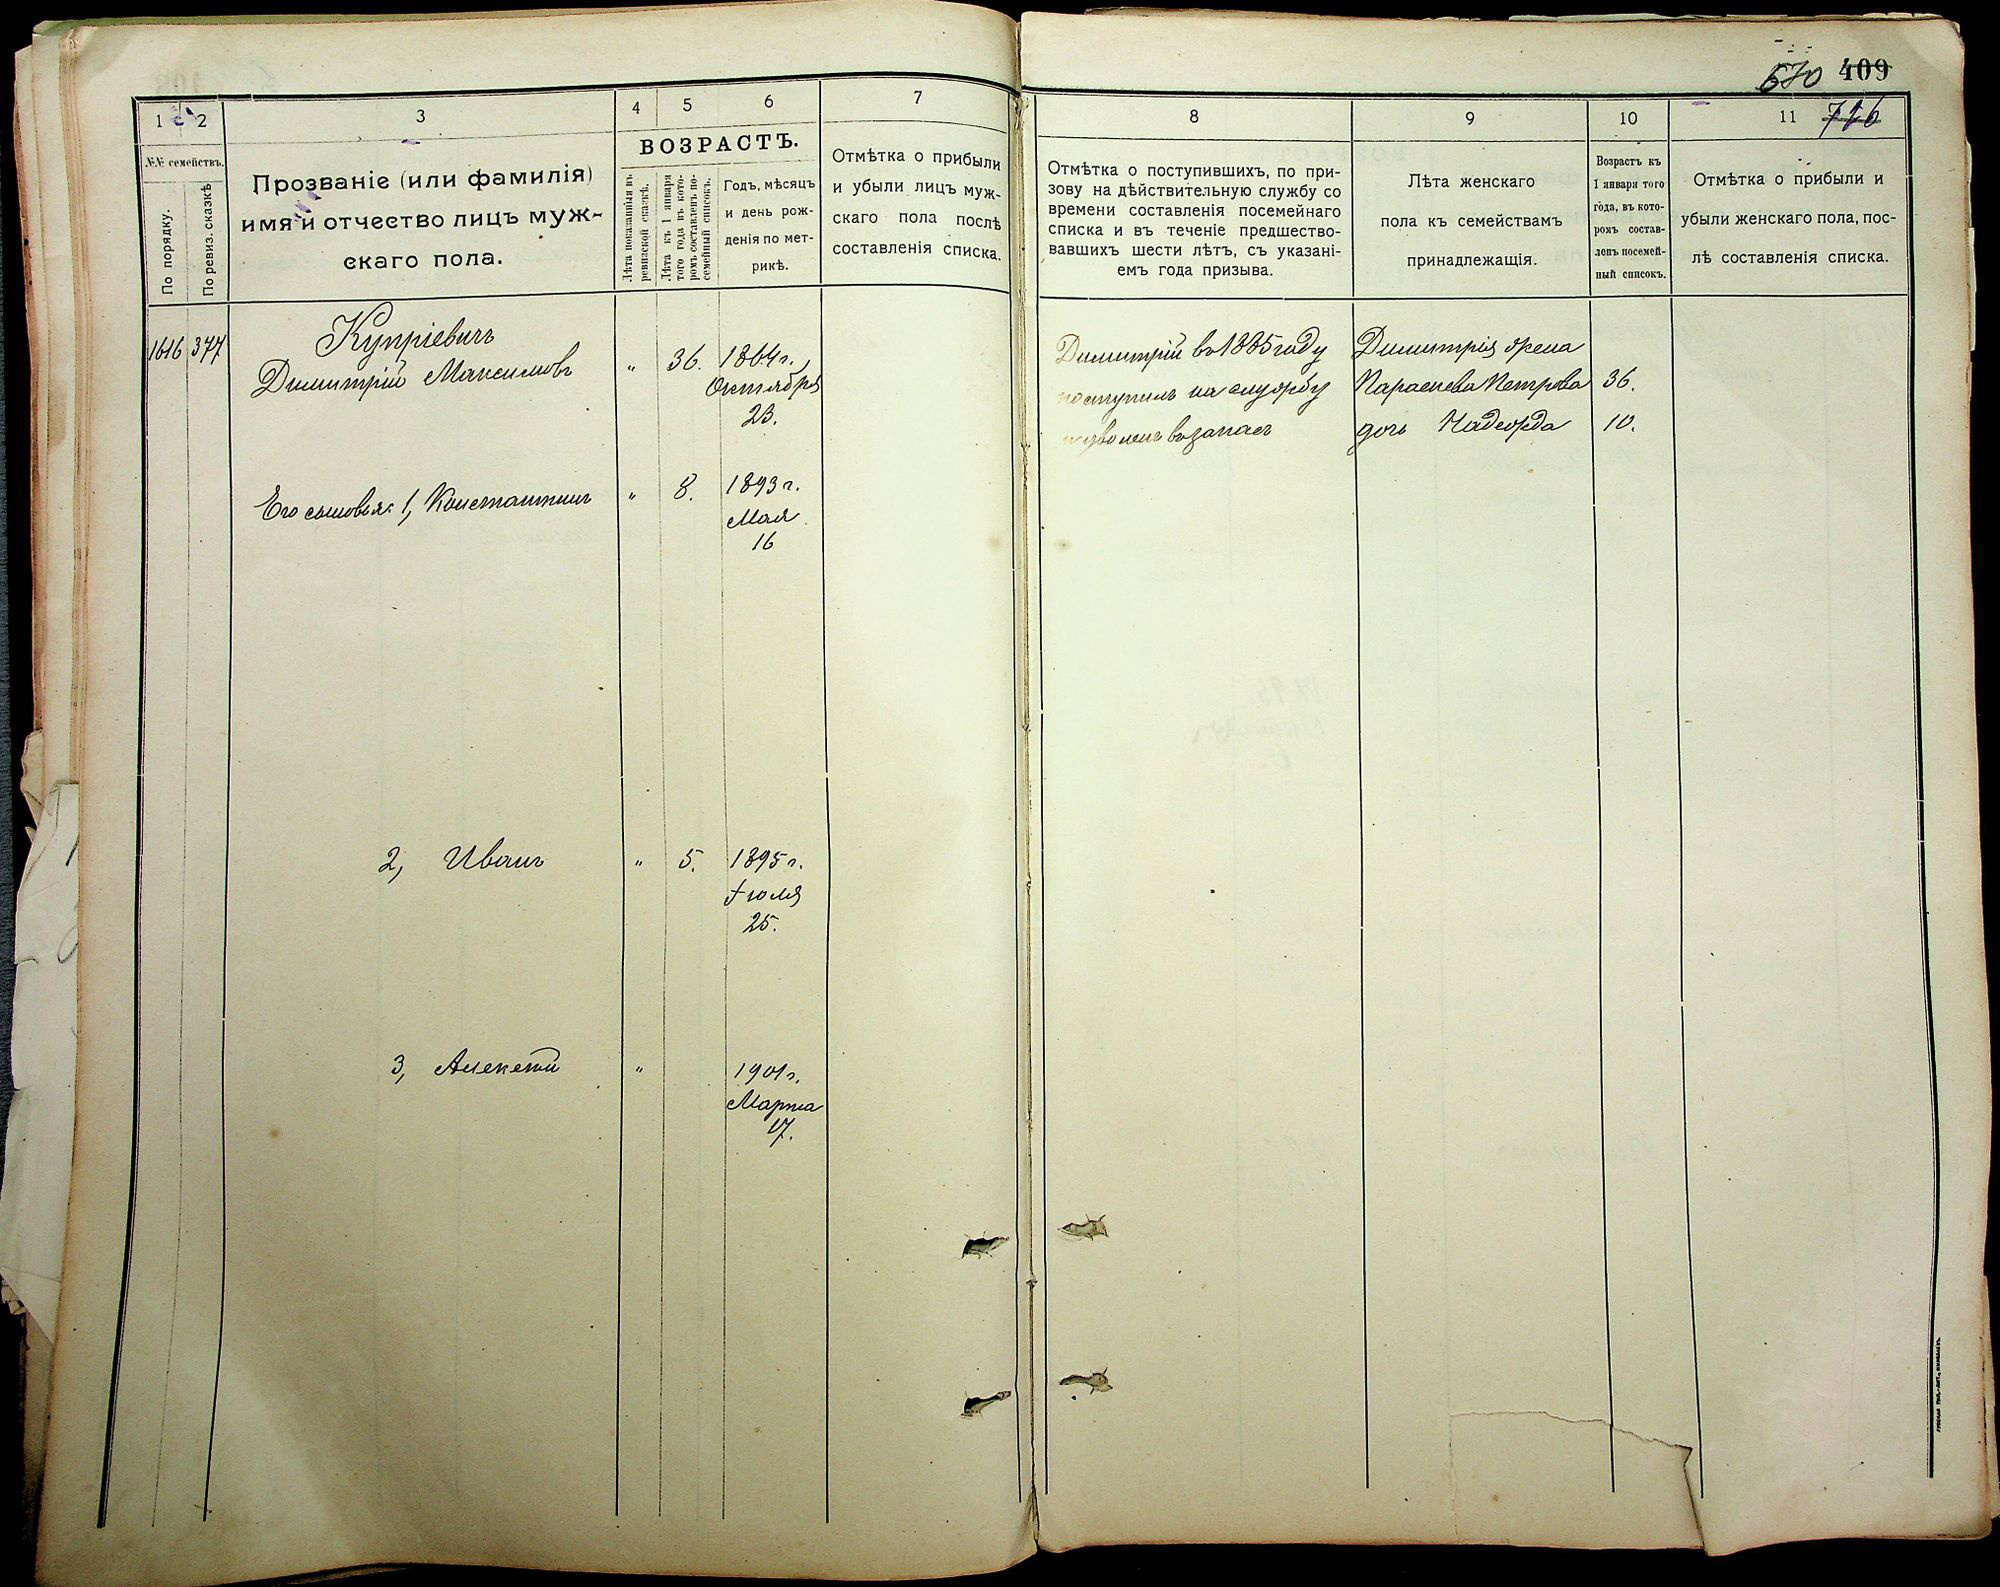 570 409
716
1 2 3 4 5 6 7
№№ семействъ.
По порядку.
По ревиз. сказкѣ
Прозваніе (или фамилія)
имя и отчество лицъ муж-
скаго пола.
ВОЗРАСТЪ.
Лѣта показанныя въ
ревизской сказкѣ.
Лѣта къ 1 января
того года въ кото-
ромъ составленъ по-
семейный списокъ.
Годъ, мѣсяцъ
и день рож-
денія по мет-
рикѣ.
Отмѣтка о прибыли
и убыли лицъ муж-
скаго пола послѣ
составленія списка.
8 9 10 11
Отмѣтка о поступившихъ, по при-
зову на дѣйствительную службу со
времени составленія посемейнаго
списка и въ теченіе предшество-
вавшихъ шести лѣтъ, съ указані-
емъ года призыва.
Лѣта женскаго
пола къ семействамъ
принадлежащія.
Возрастъ къ
1 января того
года, въ кото-
ромъ состав-
ленъ посемей-
ный списокъ.
Отмѣтка о прибыли и
убыли женскаго пола, пос-
лѣ составленія списка.
1616 377
Купріевичъ
Димитрій Максимовъ " 36. 1864 г.
Октября
23.
Его сыновья: 1, Константинъ " 8. 1893 г.
Мая
16
2, Иванъ " 5. 1895 г.
Іюля
25.
3, Алексѣй " 1901 г.
Марта
17.
Димитрій въ 1885 году
поступилъ на службу
уволенъ въ запасъ
Димитрія жена
Параскева Петрова 36.
дочь Надежда 10.